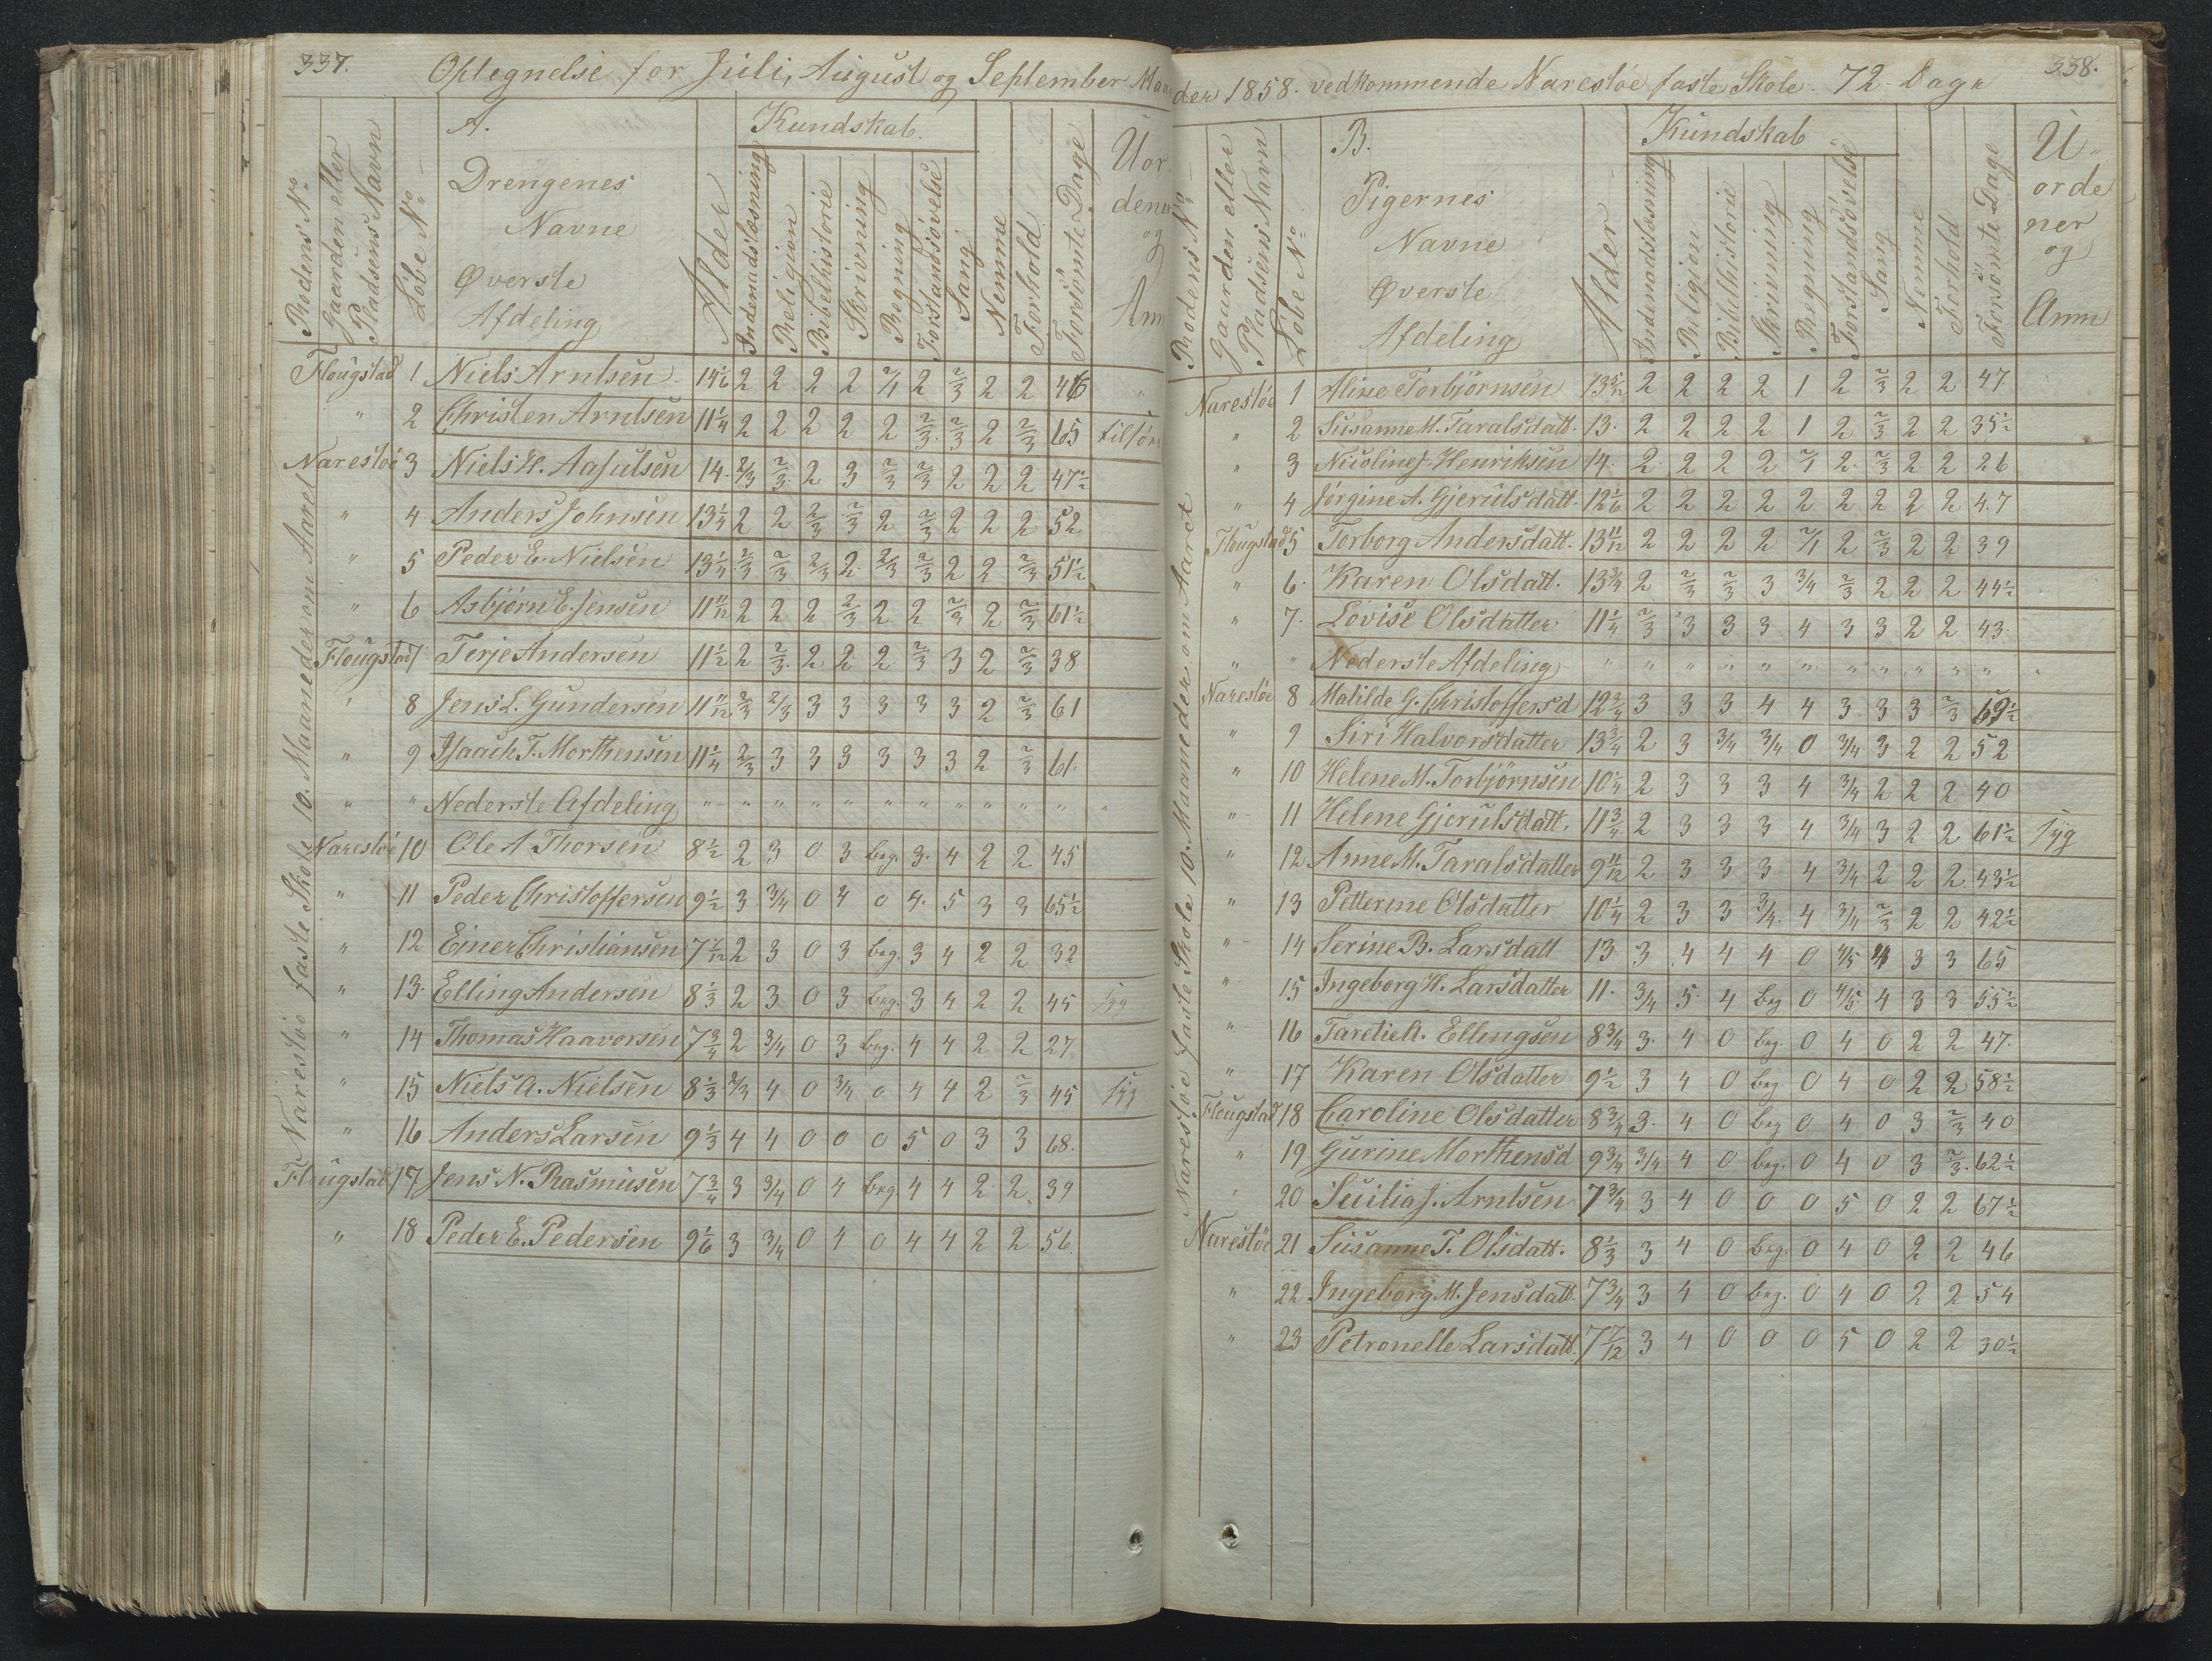 337.
Optegnelse for Juli, August og September Maa
Rodens No
Gaarden eller Pladsens Navn
Löbe No
A. Drengenes Navne Øverste Afdeling
Alder
Kundskab.
Indenadslæsning
Religion
Bibelhistorie
Skrivning
Regning
Forstandsövelse
Sang
Nemme
Forhold
Forsömte Dage
Uordener og Anm
Narestöe faste Skole 10. Maaneder om Aaret
Flougstad 1 Niels Arntsen 14 1/6 2 2 2 2 2/1 2 2/3 2 2 46 "
" 2 Christen Arntsen 11 1/4 2 2 2 2 2 2/3 2/3 2 2/3 65 tilsöes
Narestöe 3 Niels H. Aasulsen 14. 2/3 2/3 2 3 2/3 2/3 2 2 2 47 1/2
" 4 Anders Johnsen 13 1/4 2 2 2/3 2/3 2 2/3 2 2 2 52
" 5 Peder E. Nielsen 13 1/4 2/3 2/3 2/3 2 2/3 2/3 2 2 2/3 51 1/2
" 6 Asbjørn E. Jensen 11 11/12 2 2 2 2/3 2 2 2/3 2 2/3 61 1/2
Flougstad 7 Terje Andersen 11 1/2 2 2/3 2 2 2 2/3 3 2 2/3 38
" 8 Jens L. Gundersen 11 11/12 2/3 2/3 3 3 3 3 3 2 2/3 61
" 9 Isaach T. Morthensen 11 1/4 2/3 3 3 3 3 3 3 2 2/3 61.
" " Nederste Afdeling " " " " " " " " " " " "
Narestöe 10 Ole A Thorsen 8 1/2 2 3 0 3 beg. 3. 4 2 2 45
" 11 Peder Christoffersen 9 1/2 3 3/4 0 4 0 4. 5 3 3 65 1/2
" 12 Einer Christiansen 7 7/12 2 3 0 3 beg. 3 4 2 2 32
" 13. Elling Andersen 8 1/3 2 3 0 3 beg. 3 4 2 2 45 syg
" 14 Thomas Haavorsen 7 3/4 2 3/4 0 3 beg. 4 4 2 2 27
" 15 Niels A. Nielsen 8 1/3 2/3 4 0 3/4 0 4 4 2 2/3 45 syg
" 16 Anders Larsen 9 1/3 4 4 0 0 0 5 0 3 3 68.
Flougstad 17 Jens N. Rasmusen 7 3/4 3 3/4 0 4 beg. 4 4 2 2 39
" 18 Peder E. Pedersen 9 1/6 3 3/4 0 4 0 4 4 2 2 56
338.
der 1858. vedkommende Narestöe faste Skole. 72 Dage
Rodens No
Gaarden eller Pladsens Navn
Löbe No
B. Pigernes Navne Øverste Afdeling
Alder
Kundskab
Indenadslæsning
Religion
Bibelhistorie
Skrivning
Regning
Forstandsövelse
Sang
Nemme
Forhold
Forsömte Dage
Uordener og Anm
Narestöe faste Skole 10. Maaneder om Aaret
Narestöe 1 Aline Torbjörnsen 13 5/12 2 2 2 2 1 2 2/3 2 2 47
" 2 Susanne M. Taralsdatt. 13. 2 2 2 2 1 2 2/3 2 2 35 1/2
" 3 Nicoline J. Henriksen 14. 2 2 2 2 2/1 2 2/3 2 2 26
" 4 Jörgine A. Gjerulsdatt. 12 1/6 2 2 2 2 2 2 2 2 2 47
Flougstad 5 Torborg Andersdatt. 13 11/12 2 2 2 2 2/1 2 2/3 2 2 39
" 6. Karen Olsdatt. 13 3/4 2 2/3 2/3 3 3/4 2/3 2 2 2 44 1/2
" 7. Lovise Olsdatter 11 1/4 2/3 3 3 3 4 3 3 2 2 43
" " Nederste Afdeling " " " " " " " " " " " "
Narestöe 8 Matilde G. Christoffersd 12 3/4 3 3 3 4 4 3 3 3 2/3 69 1/2
" 9 Siri Halvorsdatter 13 3/4 2 3 3/4 3/4 0 3/4 3 2 2 52
" 10 Helene M. Torbjörnsen 10 1/4 2 3 3 3 4 3/4 2 2 2 40
" 11 Helene Gjerulsdatt. 11 3/4 2 3 3 3 4 3/4 3 2 2 61 1/2 syg
" 12 Anne M. Taralsdatter 9 11/12 2 3 3 3 4 3/4 2 2 2 43 1/2
" 13 Petterine Olsdatter 10 1/4 2 3 3 3/4 4 3/4 2/3 2 2 42 1/2
" 14 Serine B. Larsdatt 13 3 4 4 4 0 4/5 4 3 3 65
" 15 Ingeborg H. Larsdatter 11. 3/4 5 4 beg 0 4/5 4 3 3 55 1/2
" 16 Taretie A. Ellingsen 8 3/4 3. 4 0 beg. 0 4 0 2 2 47.
" 17 Karen Olsdatter 9 1/2 3 4 0 beg 0 4 0 2 2 58 1/2
Flougstad 18 Caroline Olsdatter 8 3/4 3. 4 0 beg 0 4 0 3 2/3 40
" 19 Gurine Morthensd 9 3/4 3/4 4 0 beg. 0 4 0 3 2/3. 62 1/2
" 20 Sicilia J. Arntsen 7 3/4 3 4 0 0 0 5 0 2 2 67 1/2
Narestöe 21 Susanne T. Olsdatt. 8 1/3 3 4 0 beg. 0 4 0 2 2 46
" 22 Ingeborg M. Jensdatt 7 3/4 3 4 0 beg. 0 4 0 2 2 54
" 23 Petronelle Larsdatt. 7 7/12 3 4 0 0 0 5 0 2 2 30 1/2